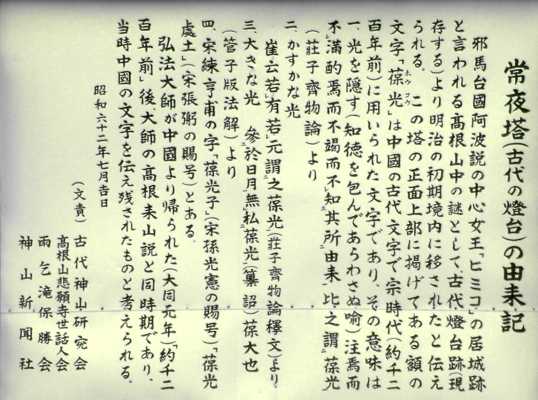 常夜塔(古代の燈台)の由来記
邪馬台國阿波説の中心女王「ヒミコ」の居城跡
と言われる高根山中の謎として古代燈台跡(現
存する)より明治の初期境内に移されたと伝え
られる。この塔の正面上部に掲げてある額の
文字「葆光」は中國の古代文字で宗時代(約千二
百年前)に用いられた文字であり、その意味は
一、光を隠す(知徳を包んであらわさぬ喩)注焉而
不満酌焉而不竭而不知其所由来、此之謂葆光
(荘子齊物論)より
二、かすかな光
崔云若有若元謂之葆光(荘子齊物論釋文)より
三、大きな光 參於日月無私葆光(纂詔)葆大也
(管子版法解)より
四、宋練亨甫の字「葆光子」(宋孫光憲の賜号)「葆光
處土」(宋張弼の賜号)とある。
弘法大師が中國より帰られた(大同元年)「約千二
百年前」後大師の高根来山説と同時期であり、
当時中國の文字を伝え残されたものと考えられる。
昭和六十二年七月吉日
(文責)古代神山研究会
高根山悲願寺世話人会
雨乞滝保勝会
神山新聞社